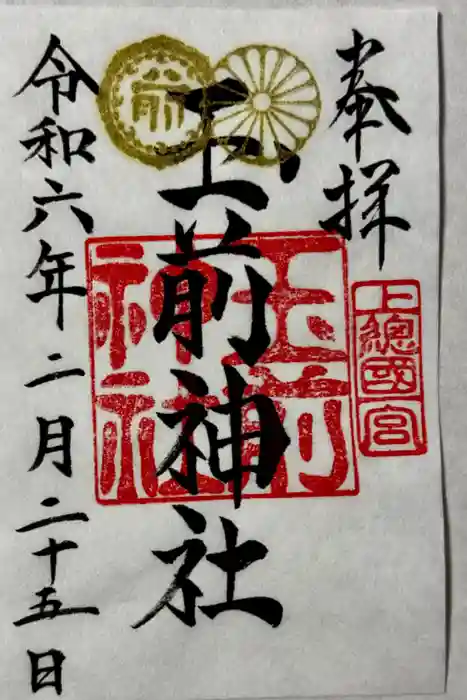 奉拝
上總國宮
玉前神社
玉前
神社
令和六年二月二十五日